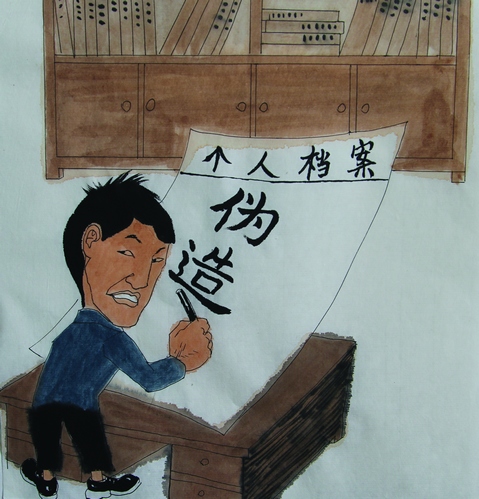 个人档案
伪
造